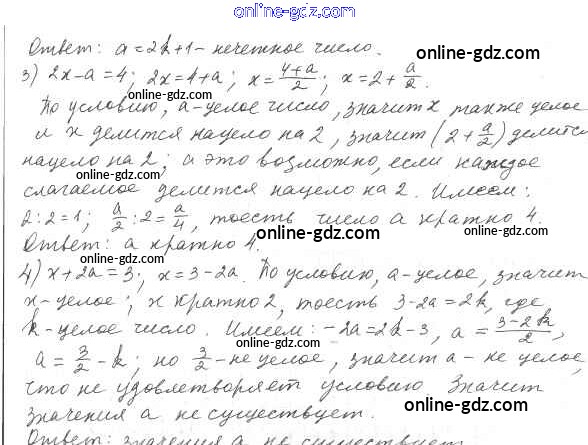 online-gdz.com
Ответ: a = 2k+1 - нечетное число.
online-gdz.com
3) 2x-a=4; 2x=4+a; x=\frac{4+a}{2}; x=2+\frac{a}{2}.
online-gdz.com
По условию, a-целое число, значит x также целое
и x делится нацело на 2, значит (2+\frac{a}{2}) делится
online-gdz.com
нацело на 2; а это возможно, если каждое
online-gdz.com
слагаемое делится нацело на 2. Имеем:
online-gdz.com
2:2=1; \frac{a}{2}:2=\frac{a}{4}, тоесть число a кратно 4.
online-gdz.com
Ответ: a кратно 4.
online-gdz.com
4) x+2a=3; x=3-2a. По условию, a-целое, значит
x-целое; x кратно 2, тоесть 3-2a=2k, где
online-gdz.com
k-целое число. Имеем: -2a=2k-3, a=\frac{3-2k}{2},
online-gdz.com
a=\frac{3}{2}-k; но \frac{3}{2}-не целое, значит a-не целое,
online-gdz.com
что не удовлетворяет условию Значит
значения a не существует.
online-gdz.com
Ответ: значения a не существует